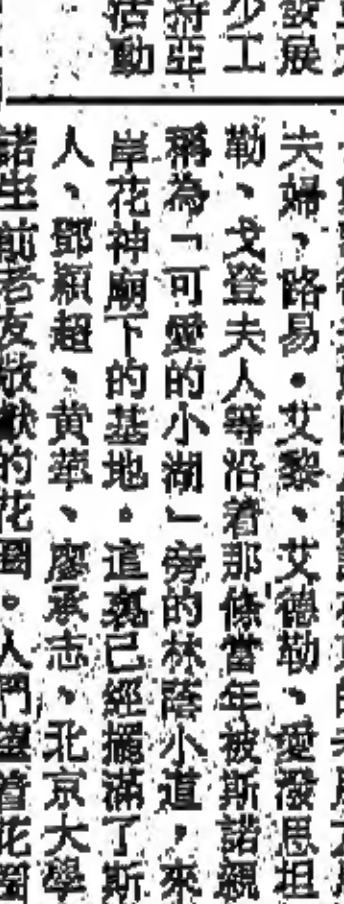 發展
少工
亞
活動
夫婦、路易•艾黎、艾德勒、愛潑思坦
勒、戈登夫人等沿着那條當年被斯諾親
稱為「可愛的小湖」旁的林蔭小道，來
岸花神廟下的基地。這裏已經擺滿了斯
人、鄧穎超、黃華、廖承志、北京大學
諾生前老友敬獻的花圈。人們望着花圈